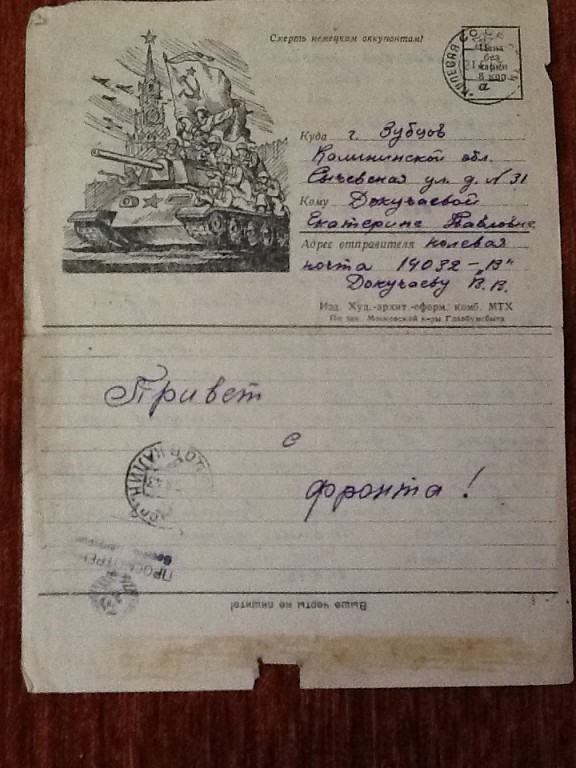 Смерть немецким оккупантам!
Цена
без
марки
8 коп.
Куда г. Зубцов
Калининской обл.
Сычевская ул. д. N 31
Кому Докучаевой
Екатерине Павловне
Адрес отправителя полевая
почта 14032 – "В"
Докучаеву В. В.
Изд. Худ.-архит.-оформ. комб. МТХ
По зак. Московской к-ры Главбумсбыта
Привет
с
фронта!
ПРОСМОТРЕНО
Выше черты не пишите!